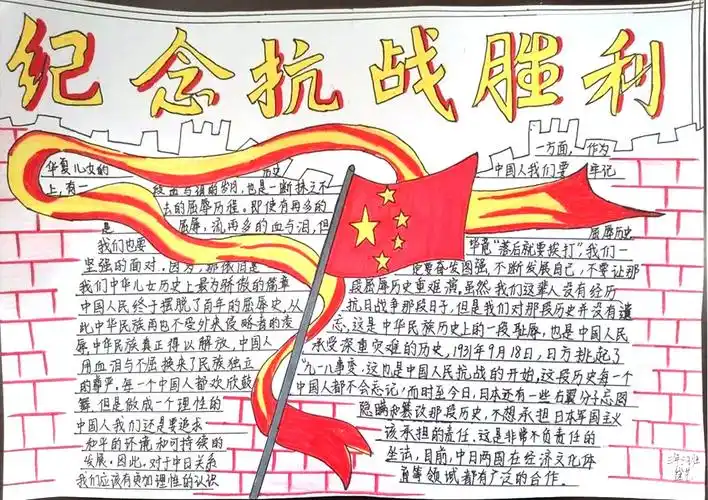 纪念抗战胜利
华夏儿女的 历史
上,有一 段血与泪的岁月,也是一断抹之不
去的屈辱历程。即使有再多的
是 屈辱,流再多的血与泪,但
我们也要
坚强的面对,因为,那依旧是
我们中华儿女历史上最为骄傲的篇章
中国人民终于摆脱了百年的屈辱史,从
此中华民族再也不受外来侵略者的凌
辱,中华民族真正得以解放,中国人
用血泪与不屈换来了民族独立
的尊严,每一个中国人都欢欣鼓
舞,但是做成一个理性的
中国人我们还是要追求
和平的环境和可持续的
发展。因此,对于中日关系
我们应该有更加理性的认识
一方面,作为
中国人我们要 牢记
屈辱历史
毕竟“落后就要挨打”,我们一
定要奋发图强,不断发展自己,不要让那
段屈辱历史重难演。虽然,我们这辈人没有经历
抗日战争那段日子,但是我们对那段历史并没有遗
忘,这是中华民族历史上的一段耻辱,也是中国人民
承受深重灾难的历史,1931年9月18日,日方挑起了
“九一八事变,这也是中国人民抗战的开始,这段历史每一个
中国人都不会忘记,而时至今日,日本还有一些右翼分子忘图
隐瞒和篡改那段历史,不想承担日本军国主义
该承担的责任。这是非常不负责任的
坐法,目前,中日两国在经济文化体
育等领域都有广泛的合作。